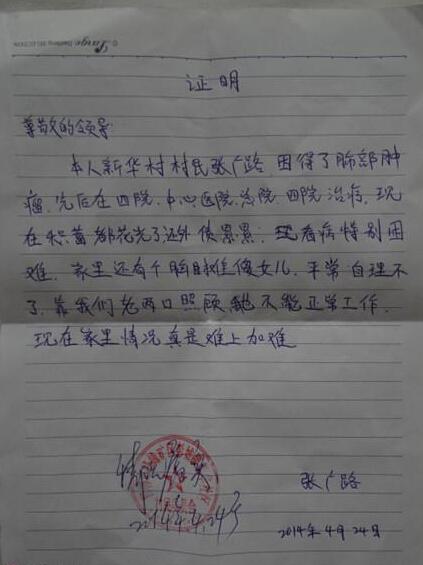 证明
尊敬的领导:
本人新华村村民张广路,因得了肺部肿
瘤,先后在四院、中心医院、总院、四院治病,现
在积蓄都花光了还外债累累,现看病特别困
难,家里还有个脑瘫傻女儿,平常自理不
了,靠我们老两口照顾她不能正常工作,
现在家里情况真是难上加难
情况属实
2014.4.24号
张广路
2014年4月24日